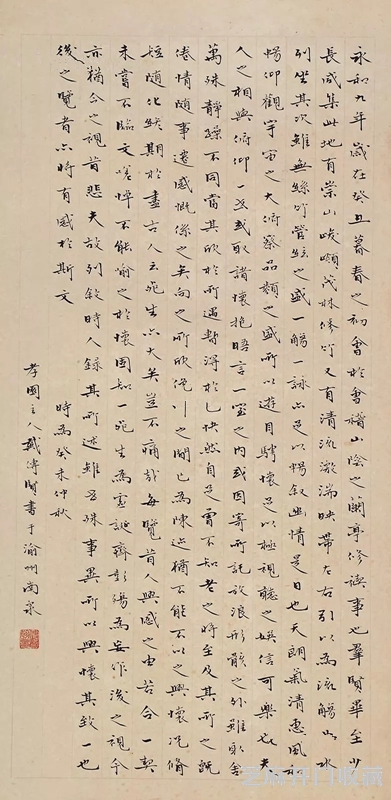 永和九年歲在癸丑暮春之初會於會稽山陰之蘭亭修禊事也羣賢畢至少
長咸集此地有崇山峻嶺茂林修竹又有清流激湍映帶左右引以為流觴曲水
列坐其次雖無絲竹管絃之盛一觴一詠亦足以暢敘幽情是日也天朗氣清惠風和
暢仰觀宇宙之大俯察品類之盛所以遊目騁懷足以極視聽之娛信可樂也夫
人之相與俯仰一世或取諸懷抱晤言一室之內或因寄所託放浪形骸之外雖取舍
萬殊靜躁不同當其欣於所遇暫得於己快然自足曾不知老之將至及其所之既
倦情隨事遷感慨係之矣向之所欣俛仰之閒已為陳迹猶不能不以之興懷況脩
短隨化終期於盡古人云死生亦大矣豈不痛哉每覽昔人興感之由若合一契
未嘗不臨文嗟悼不能喻之於懷固知一死生為虛誕齊彭殤為妄作後之視今
亦猶今之視昔悲夫故列敘時人錄其所述雖世殊事異所以興懷其致一也
後之覽者亦將有感於斯文
時為癸未仲秋
孝園主人戴傳賢書于渝州南泉
芝麻开门收藏